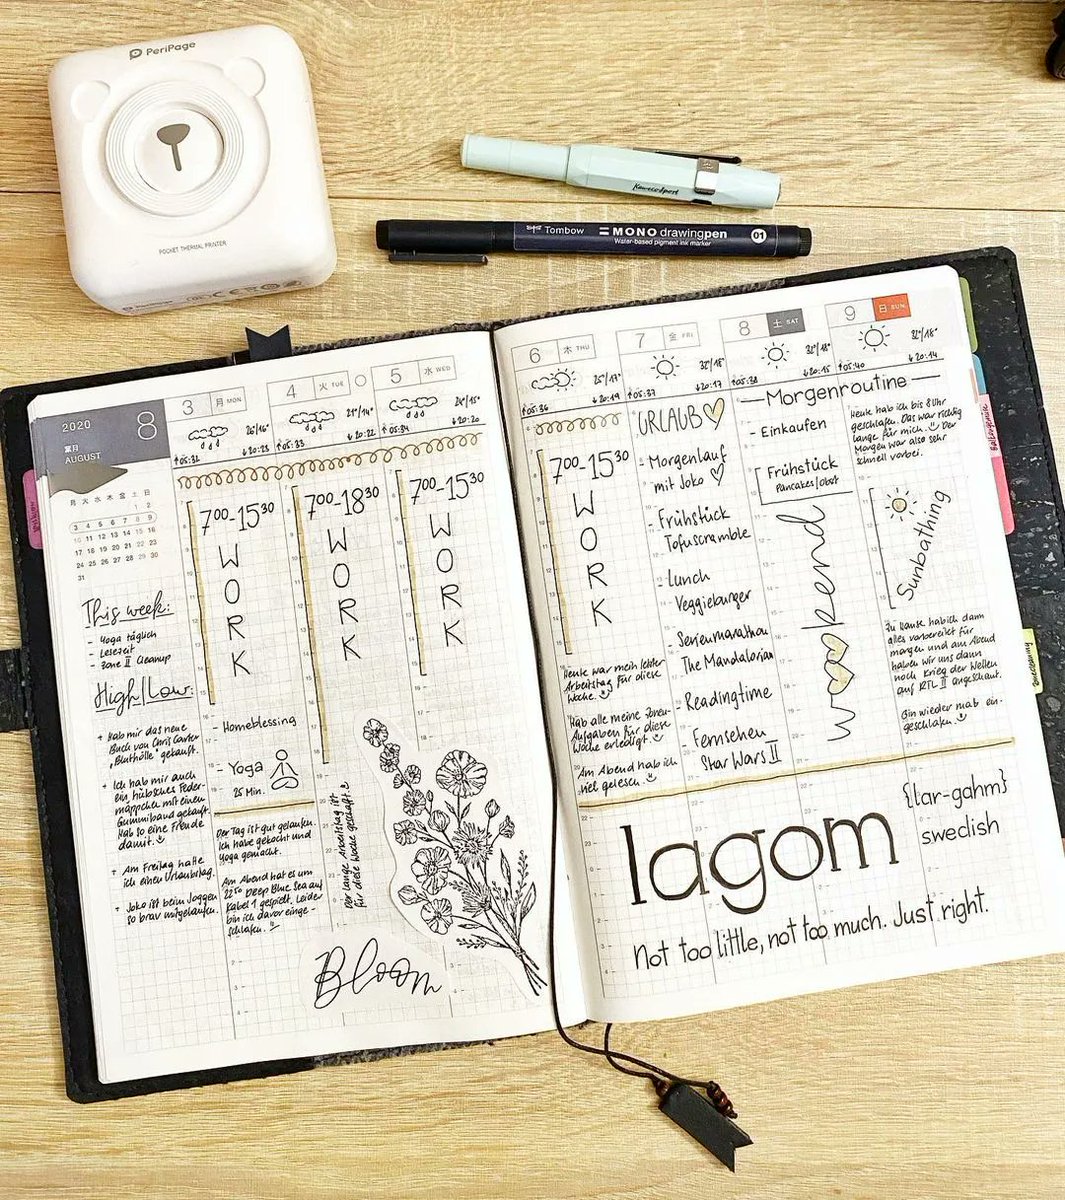 PeriPage
POCKET THERMAL PRINTER
Kaweco Sport
Tombow
MONO drawingpen
Water-based pigment ink marker
01
2020
8
葉月
AUGUST
月 火 水 木 金 土 日
1 2
3 4 5 6 7 8 9
10 11 12 13 14 15 16
17 18 19 20 21 22 23
24 25 26 27 28 29 30
31
This week:
- Yoga täglich
- Lesezeit
- Zone II Cleanup
High/Low:
+ Hab mir das neue
Buch von Chris Carter
"Bluthölle" gekauft.
+ Ich hab mir auch
ein hübsches Feder-
mäppchen mit einem
Gummiband gekauft.
Hab so eine Freude
damit.
+ Am Freitag hatte
ich einen Urlaubstag.
+ Joko ist beim Joggen
so brav mitgelaufen.
3 月 MON
↑05:32 ↓20:23
7⁰⁰-15³⁰
WORK
- Homeblessing
- Yoga
25 Min.
Der Tag ist gut gelaufen.
Ich habe gekocht und
Yoga gemacht.
Am Abend hat es um
22⁵⁰ Deep Blue Sea auf
Kabel 1 gespielt. Leider
bin ich davor einge-
schlafen.
4 火 TUE
21°/14°
↑05:33 ↓20:22
7⁰⁰-18³⁰
WORK
Der lange Arbeitstag ist
für diese Woche geschafft.
Bloom
5 水 WED
24°/15°
↑05:34 ↓20:20
7⁰⁰-15³⁰
WORK
6 木 THU
↑05:36 ↓20:19
7⁰⁰-15³⁰
WORK
Heute war mein letzter
Arbeitstag für diese
Woche.
Hab alle meine Zonen-
Aufgaben für diese
Woche erledigt.
Am Abend hab ich
viel gelesen.
7 金 FRI
↑05:37 ↓20:17
URLAUB
- Morgenlauf
mit Joko
- Frühstück
Tofuscramble
- Lunch
Veggieburger
- Serienmarathon
The Mandalorian
- Readingtime
- Fernsehen
Star Wars II
8 土 SAT
32°/18°
↑05:38 ↓20:15
— Morgenroutine —
- Einkaufen
Frühstück
Pancakes/Obst
weekend
9 日 SUN
32°/18°
↑05:40 ↓20:14
Heute hab ich bis 8 Uhr
geschlafen. Das war richtig
lange für mich. Der
Morgen war also sehr
schnell vorbei.
Sunbathing
Zu Hause hab ich dann
alles vorbereitet für
morgen und am Abend
haben wir uns dann
noch Krieg der Welten
auf RTL II angeschaut.
Bin wieder mal ein-
geschlafen.
lagom
{lar-gahm}
swedish
Not too little, not too much. Just right.